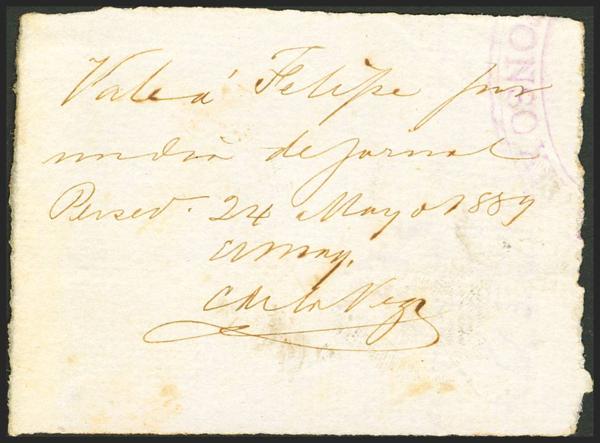 Vale á Felipe por
un dia de jornal
Persev. 24 Mayo 1889
El May.
C de la Vega
ONSO